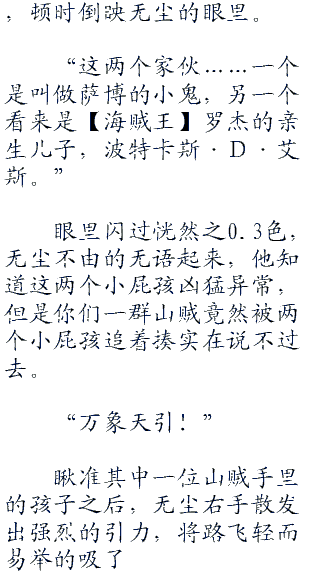 ，顿时倒映无尘的眼里。
“这两个家伙……一个
是叫做萨博的小鬼，另一个
看来是【海贼王】罗杰的亲
生儿子，波特卡斯·D·艾
斯。”
眼里闪过恍然之0.3色，
无尘不由的无语起来，他知
道这两个小屁孩凶猛异常，
但是你们一群山贼竟然被两
个小屁孩追着揍实在说不过
去。
“万象天引！”
瞅准其中一位山贼手里
的孩子之后，无尘右手散发
出强烈的引力，将路飞轻而
易举的吸了